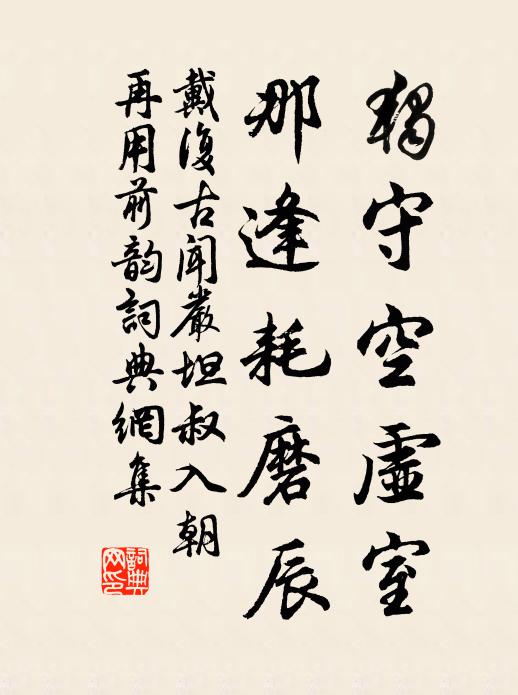 獨守空虛室
那逢耗磨辰
戴復古聞嚴坦叔入朝
再用前韵詞典網集
詞典网印